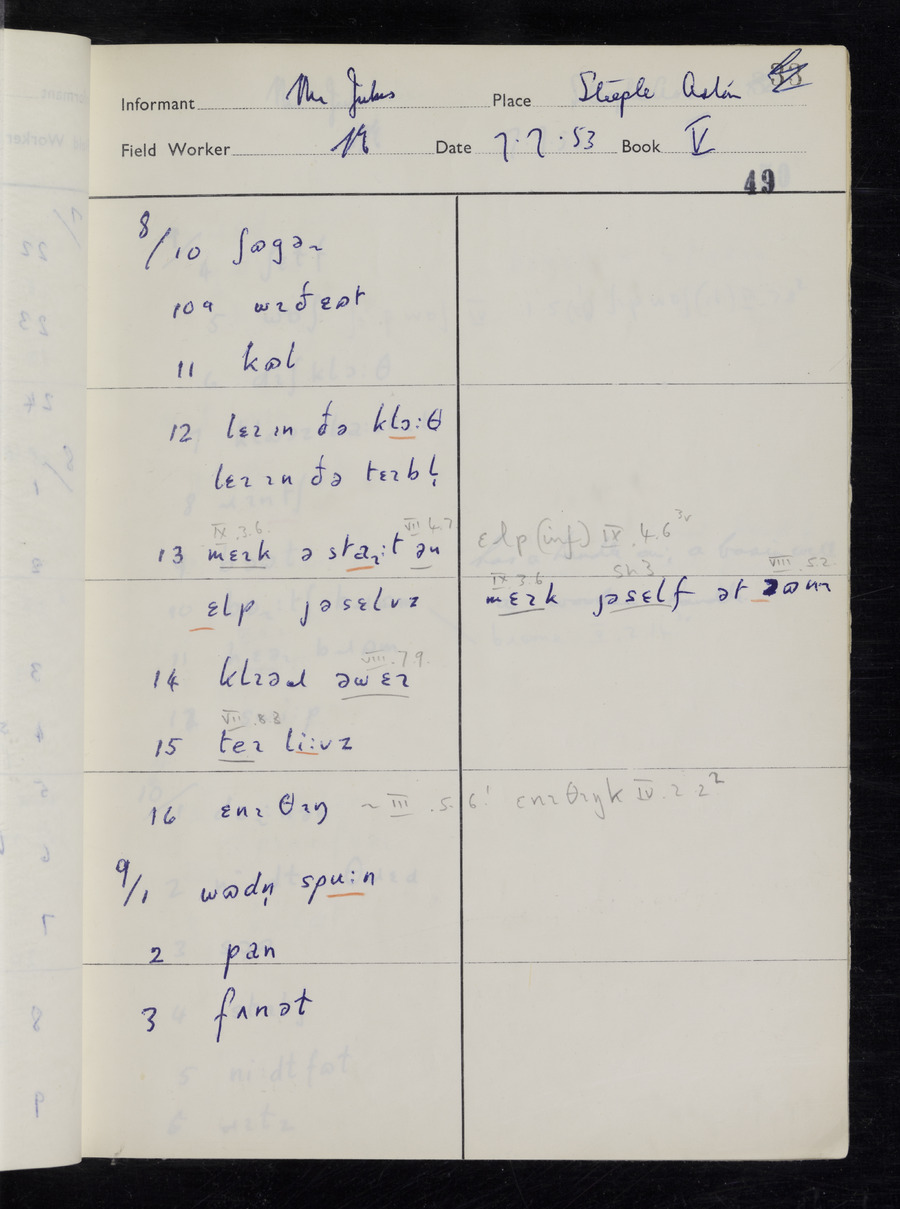 Informant Mr Jukes Place Steeple Aston
Field Worker Date 7.7.53 Book V
49
8/10 ʃɷgəɹ
10a wɪðɛɷt
11 kɷl
12 lɛɪ ɪn ðə klɔ:θ
lɛɪ ɪn ðə tɛɪbl̩
IX.3.6. VII 4.7
13 mɛɪk ə staɹ:t ən
ɛlp (inf) IX.4.6
ɛlp jəsɛlvz
IX 3.6 VIII.5.2.
mɛɪk jəsɛlf ət
VIII.7.9.
14 klɪəɹ əwɛɪ
VII.8.3
15 tɛɪ li:vz
16 ɛnɪ θɪŋ ~ III.5.6! ɛnɪ θɪŋk IV.2.2²
9/1 wɷdn̩ spu:n
2 pan
3 fʌnət